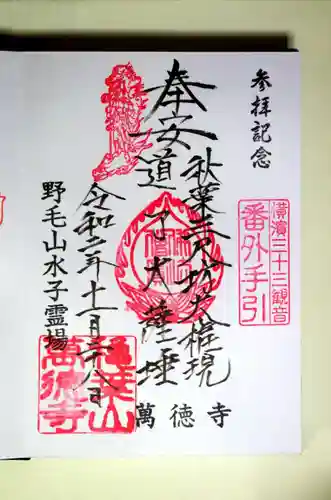 参拝記念
横濱三十三観音
番外手引
奉安
秋葉三尺坊大権現
道了大薩埵
令和二年十一月二十八日
野毛山水子霊場
萬徳寺
秋葉山
萬徳寺